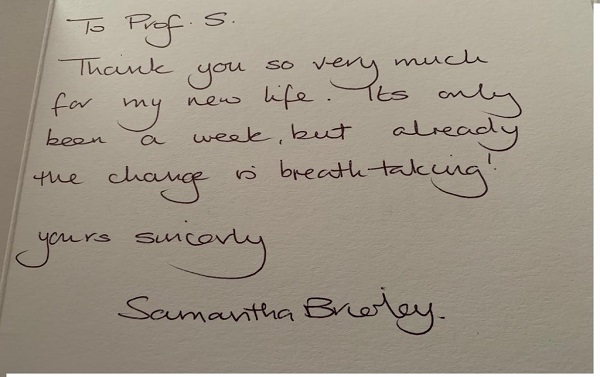 To Prof. S.
Thank you so very much
for my new life. Its only
been a week, but already
the change is breath-taking!
yours sincerly
Samantha Brierley.